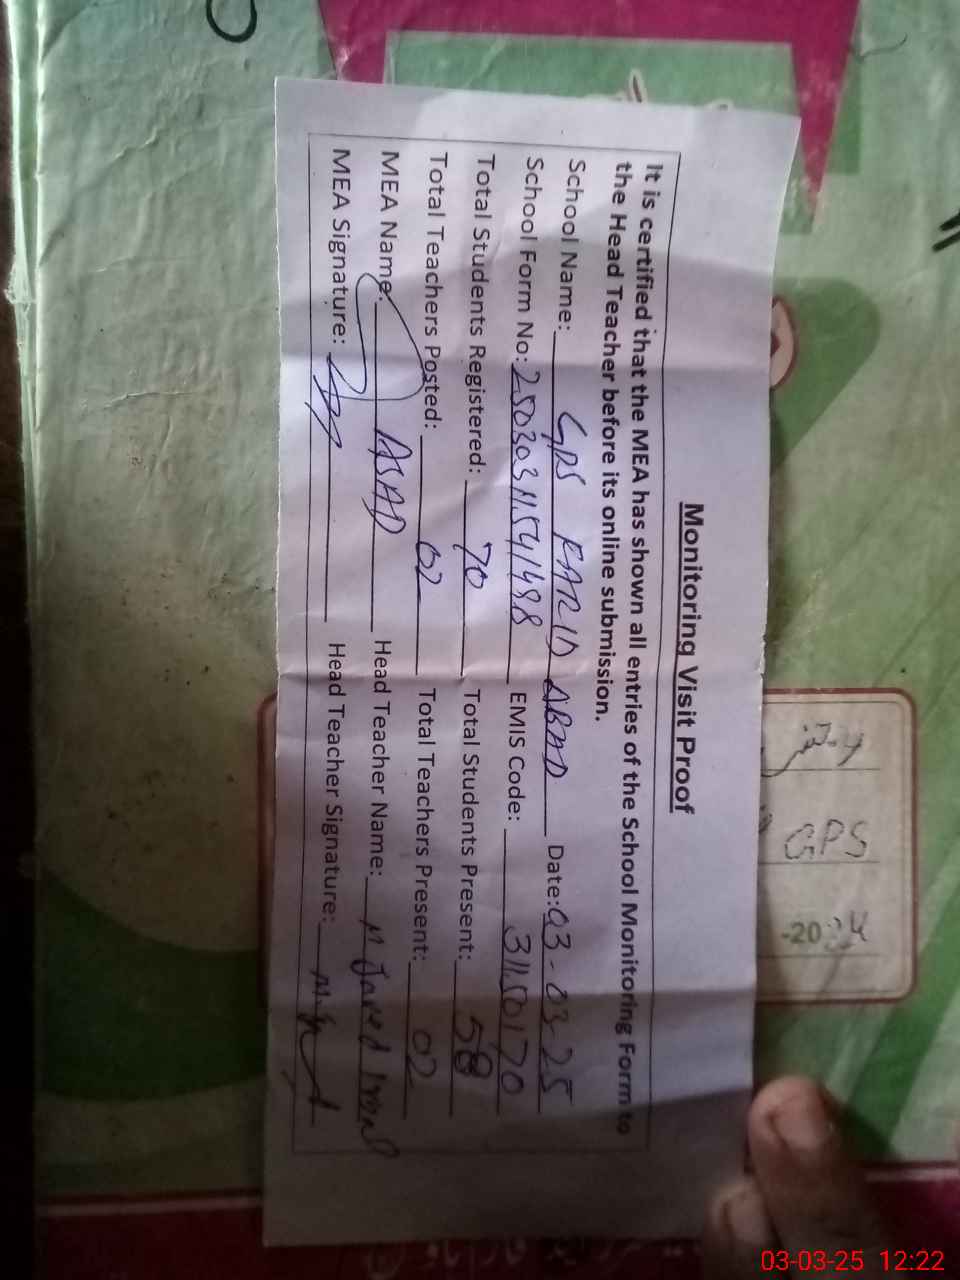 Monitoring Visit Proof
It is certified that the MEA has shown all entries of the School Monitoring Form to
the Head Teacher before its online submission.
School Name: GPS FARID ABAD Date: 03-03-25
School Form No: EMIS Code: 31150170
Total Students Registered: 70 Total Students Present: 58
Total Teachers Posted: 02 Total Teachers Present: 02
MEA Name: ASAD Head Teacher Name: M Javed
MEA Signature: Head Teacher Signature:
GPS
-2024
03-03-25 12:22